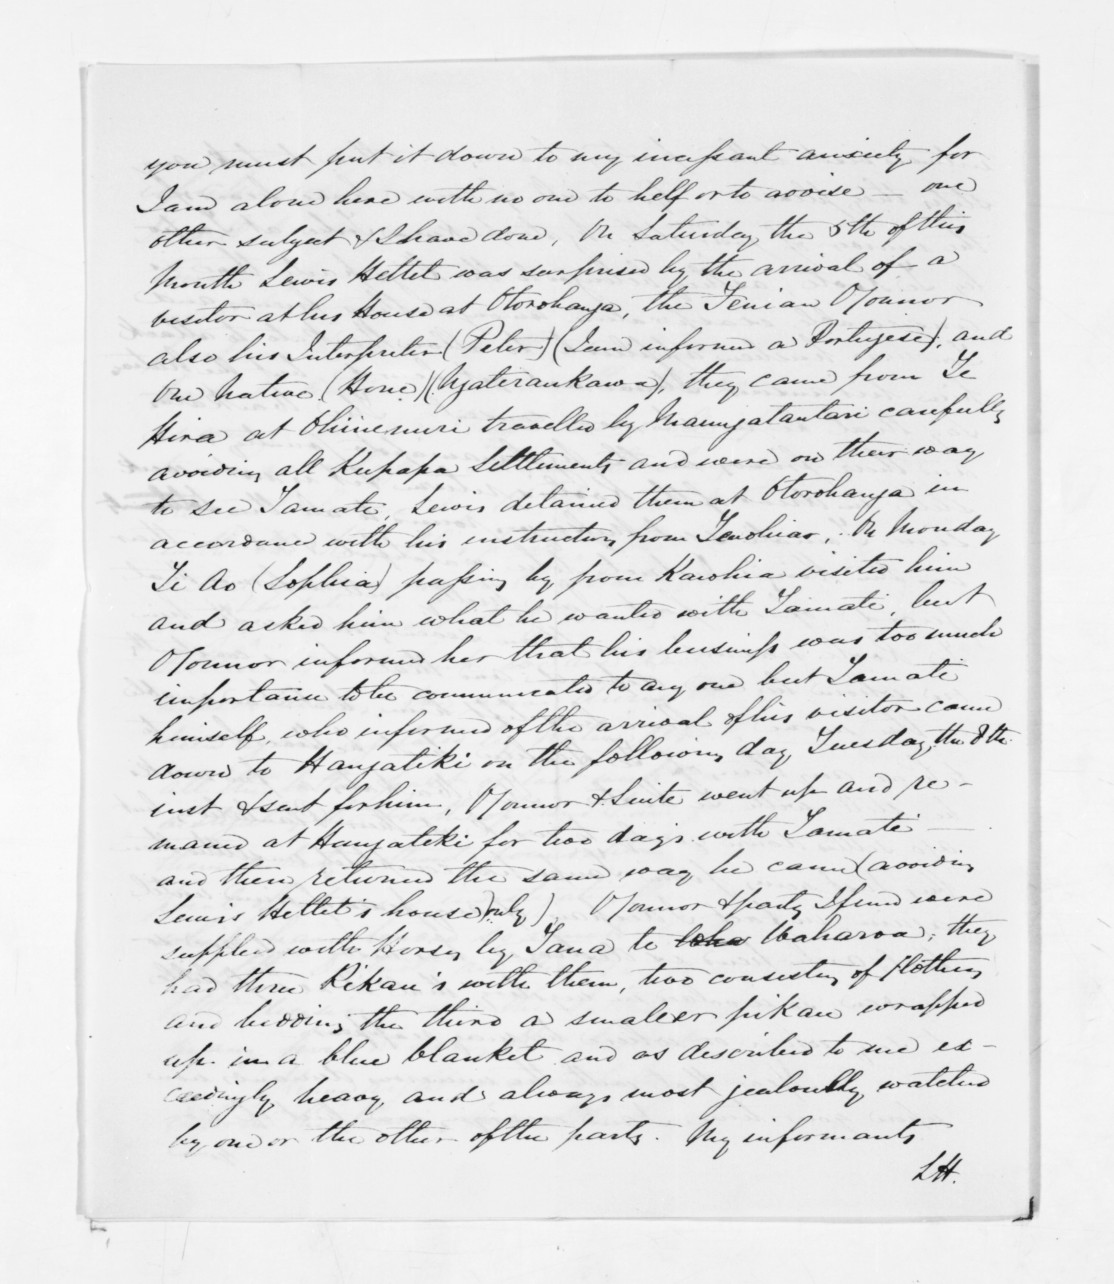 you must put it down to my incessant anxiety for
I am alone here with no one to help or to advise — one
other subject & I have done, On Saturday the 5th of this
Month Lewis Hettet was surprised by the arrival of a
visitor at his House at Otorohanga, the Fenian O'Connor
also his Interpreter (Peter) (I am informed a Portugese), and
One Native (Hone) (Ngateraukawa), they came from Te
Hira at Ohinemuri travelled by Maungatautari carefully
avoiding all Kupapa Settlements and were on their way
to see Tamate, Lewis detained them at Otorohanga in
accordance with his instructions from . On Monday
Te Ao (Sophia) passing by from Kawhia visited him
and asked him what he wanted with Tamati, but
O'Connor informed her that his business was too much
importance to be communicated to any one but Tamati
himself, who informed of the arrival of his visitor came
down to Hangatiki on the following day Tuesday the 8th
inst & sent for him, O'Connor & Suite went up and re-
mained at Hangatiki for two days with Tamati —
and then returned the same way he came (avoiding
Lewis Hettet's house only), O'Connor & party I find were
supplied with Horses by Tana te Waharoa; they
had three Pikau's with them, two consisting of clothing
and bedding the third a smaller pikau wrapped
up in a blue blanket and as described to me ex-
ceedingly heavy and always most jealously watched
by one or the other of the party. My informants
LH.